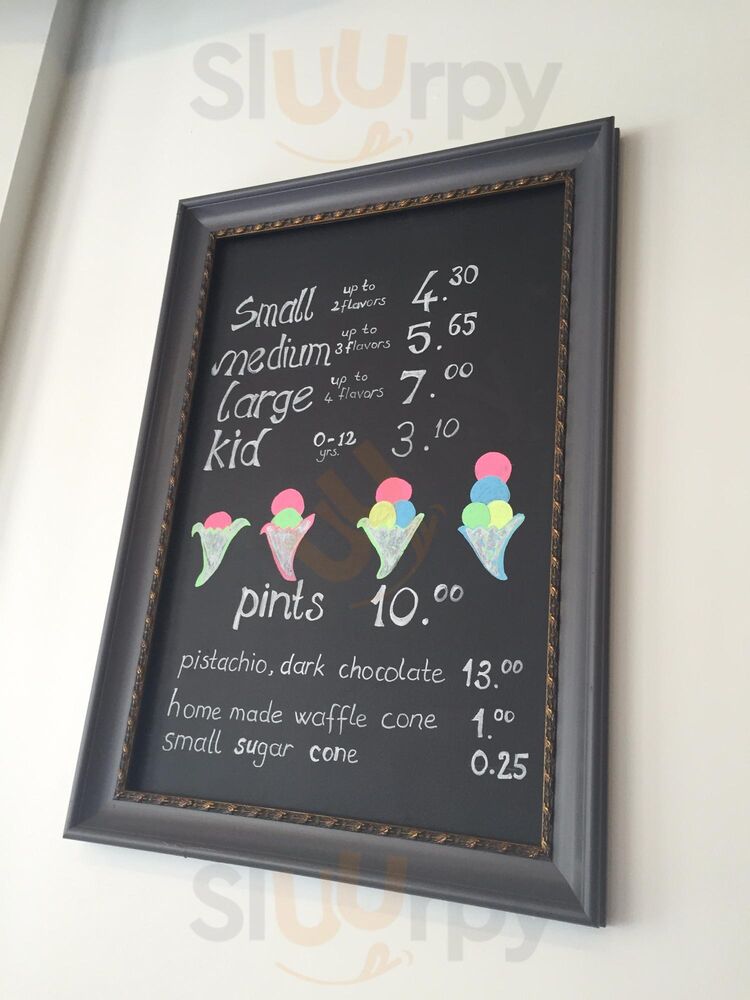 Sluurpy
small up to 2 flavors 4.30
medium up to 3 flavors 5.65
large up to 4 flavors 7.00
kid 0-12 yrs. 3.10
pints 10.00
pistachio, dark chocolate 13.00
home made waffle cone 1.00
small sugar cone 0.25
Sluurpy